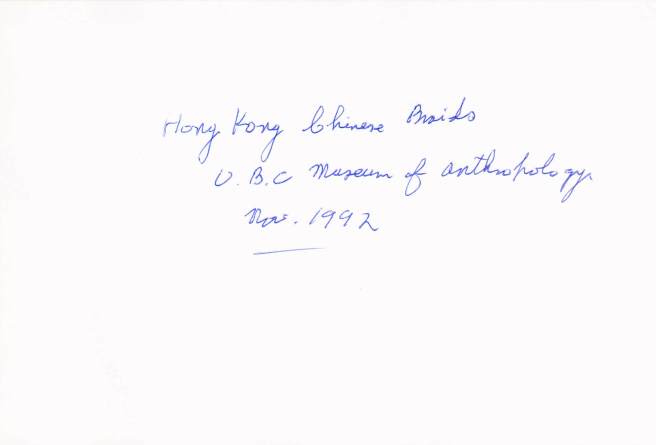 Hong Kong Chinese Braids
U.B.C Museum of anthropology
Nov. 1992